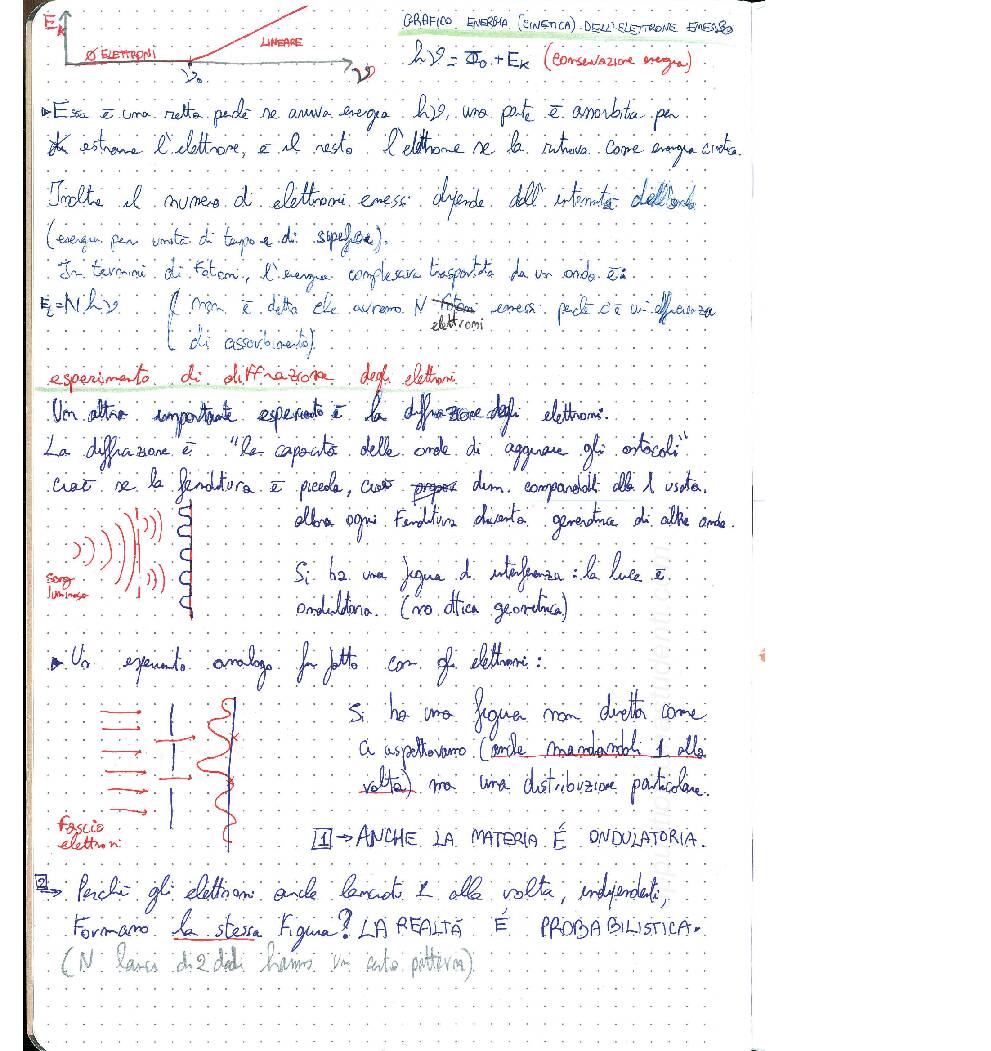 GRAFICO ENERGIA (CINETICA) DELL'ELETTRONE EMESSO
Eₖ
Ø ELETTRONI
LINEARE
ν₀
ν
hν = Φ₀ + Eₖ (conservazione energia)
Essa è una retta perché se arriva energia hν, una parte è assorbita per
estrarre l'elettrone, e il resto l'elettrone se la ritrova come energia cinetica.
Inoltre il numero di elettroni emessi dipende dall'intensità dell'onda
(energia per unità di tempo e di superficie).
In termini di Fotoni, l'energia complessiva trasportata da un onda è:
E = N hν ( non è detto che avremo N elettroni emessi perché c'è un'efficienza
di assorbimento)
esperimento di diffrazione degli elettroni
Un altro importante esperimento è la diffrazione degli elettroni.
La diffrazione è "la capacità delle onde di aggirare gli ostacoli"
cioè se la fenditura è piccola, cioè dim. comparabili alla λ usata.
allora ogni Fenditura diventa generatrice di altre onde.
Sorg
luminosa
Si ha una figura di interferenza: la luce è
ondulatoria. (no ottica geometrica)
Un esperimento analogo fu fatto con gli elettroni:
Si ha una figura non diretta come
ci aspettavamo (anche mandandoli 1 alla
volta) ma una distribuzione particolare.
Fascio
elettroni
1 → ANCHE LA MATERIA É ONDULATORIA.
2 → Perché gli elettroni anche lanciati 1 alla volta, indipendenti,
Formano la stessa Figura? LA REALTÁ É PROBABILISTICA.
(N lanci di 2 dadi hanno un certo pattern)